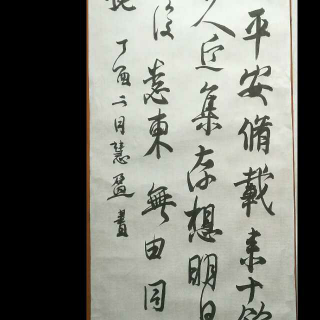 平安脩載來十餘
人近集存想明日
復悉來無由同
丁酉二月慧盈書